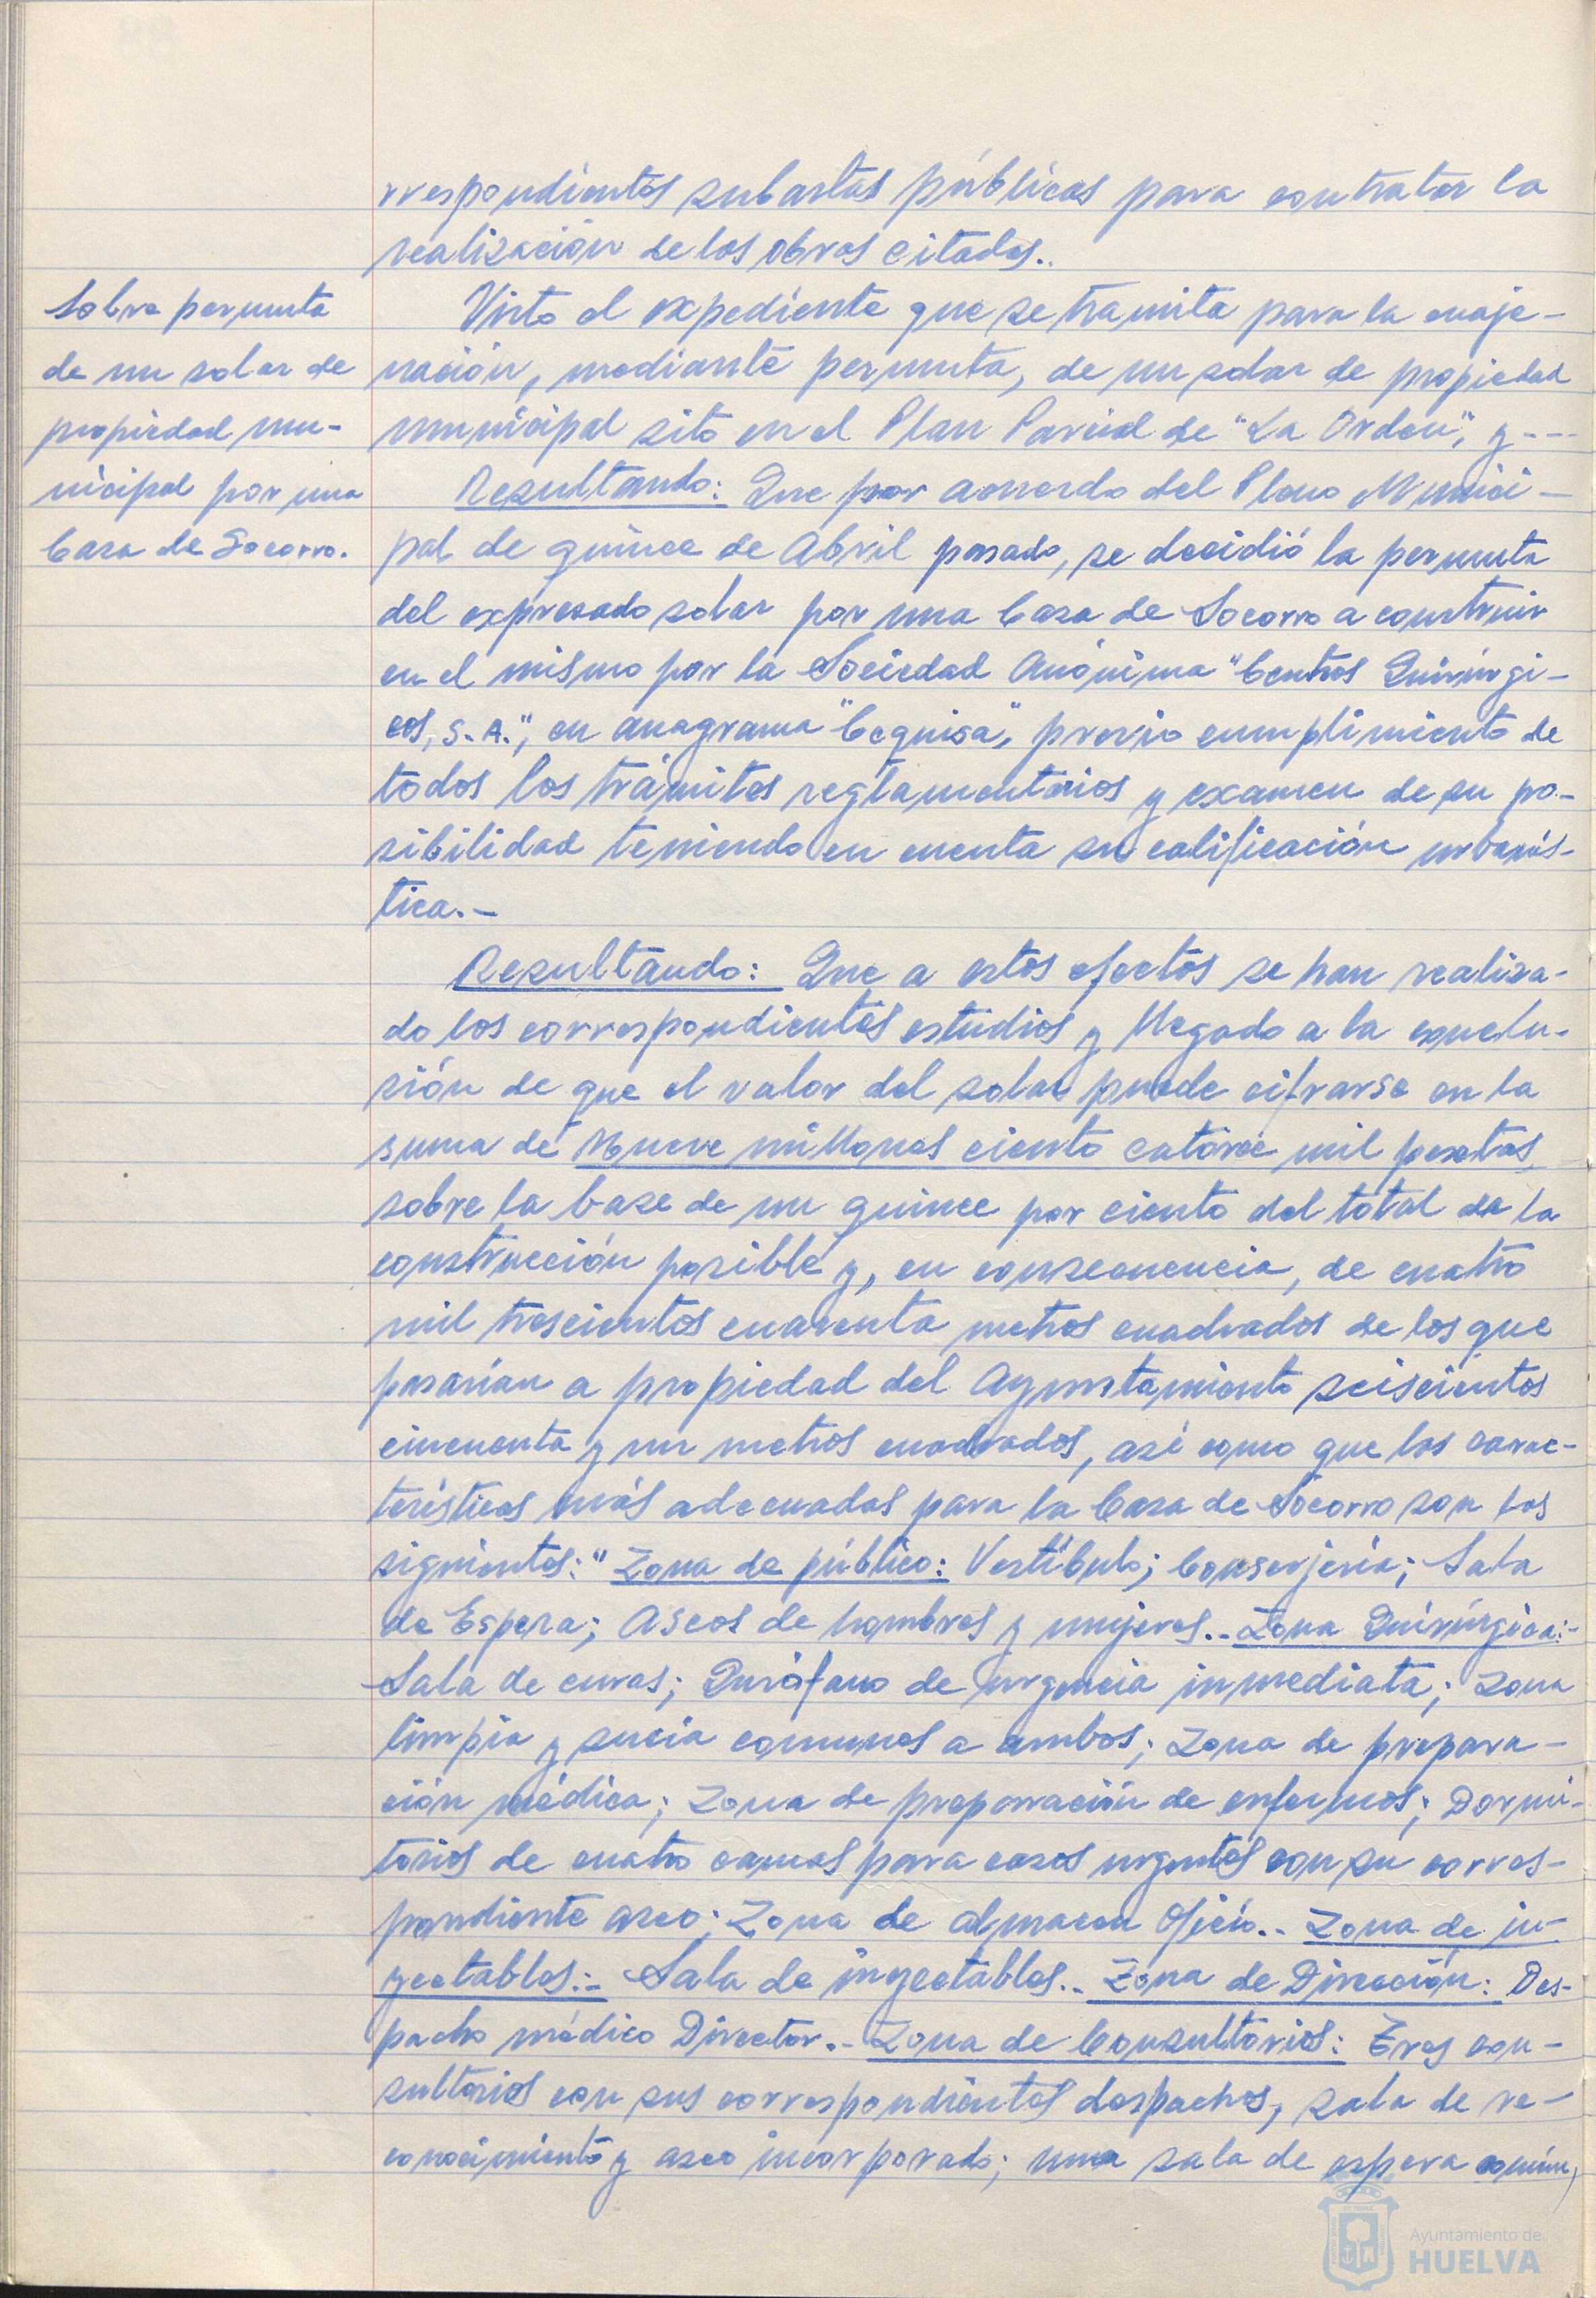 rrespondientes subastas públicas para contratar la
realización de las obras citadas..
Sobre permuta
de un solar de
propiedad mu-
nicipal por una
Casa de Socorro.
Visto el expediente que se tramita para la enaje-
nación, mediante permuta, de un solar de propiedad
municipal sito en el Plan Parcial de "La Orden", y ---
Resultando: Que por acuerdo del Pleno Munici-
pal de quince de Abril pasado, se decidió la permuta
del expresado solar por una Casa de Socorro a construir
en el mismo por la Sociedad Anónima "Centros Quirúrgi-
cos, S.A.", en anagrama "Cequisa", previo cumplimiento de
todos los trámites reglamentarios y examen de su po-
sibilidad teniendo en cuenta su calificación urbanís-
tica.-
Resultando: Que a estos efectos se han realiza-
do los correspondientes estudios y llegado a la conclu-
sión de que el valor del solar puede cifrarse en la
suma de Nueve millones ciento catorce mil pesetas,
sobre la base de un quince por ciento del total de la
construcción posible y, en consecuencia, de cuatro
mil trescientos cuarenta metros cuadrados de los que
pasarían a propiedad del Ayuntamiento seiscientos
cincuenta y un metros cuadrados, así como que las carac-
terísticas más adecuadas para la Casa de Socorro son las
siguientes: "Zona de público: Vestíbulo; Conserjería; Sala
de Espera; Aseos de hombres y mujeres.- Zona Quirúrgica:-
Sala de curas; Quirófano de urgencia inmediata; Zona
limpia y sucia comunes a ambos; Zona de prepara-
ción médica; Zona de preparación de enfermos; Dormi-
torios de cuatro camas para casos urgentes con su corres-
pondiente aseo; Zona de almacen Oficio.- Zona de in-
yectables:- Sala de inyectables.- Zona de Dirección: Des-
pacho médico Director.- Zona de Consultorios: Tres con-
sultorios con sus correspondientes despachos, sala de re-
conocimiento y aseo incorporado; una sala de espera común,
Ayuntamiento de
HUELVA